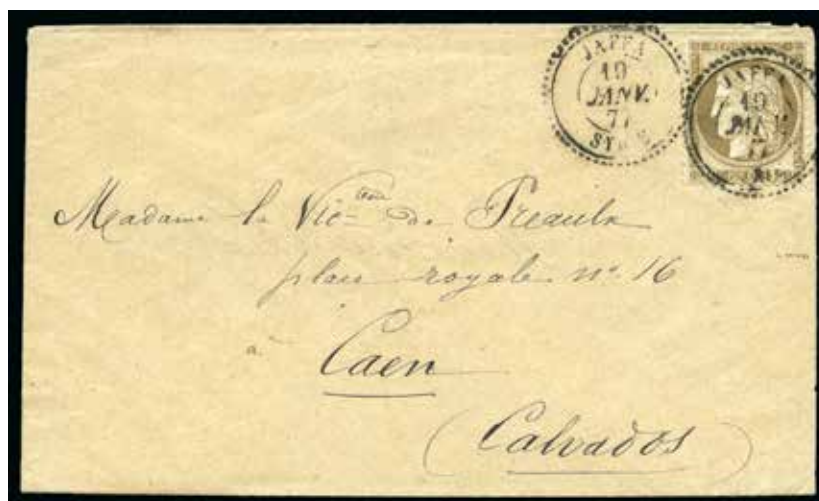 JAFFA
19
JANV.
77
SYRIE
JAFFA
19
JANV.
77
Madame la Vic^tesse de Preaulx
place royale n° 16
à Caen
(Calvados)